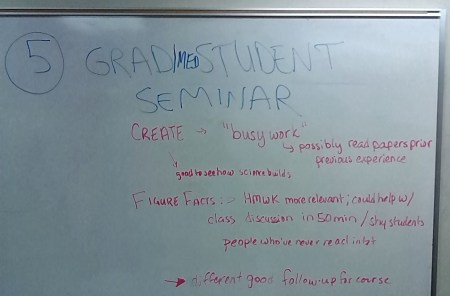 5 GRAD/MED STUDENT
SEMINAR
CREATE → "busy work"
↳ possibly read papers prior
previous experience
good to see how science builds
FIGURE FACTS: → HMWK more relevant; could help w/
class discussion in 50 min / shy students
people who've never read
→ different good follow-up for course